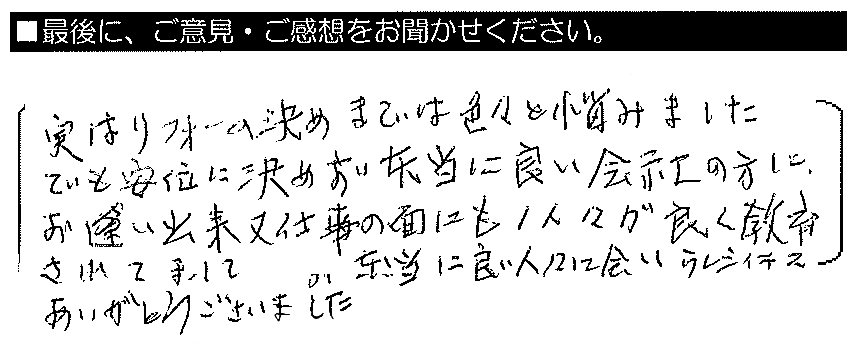 ■最後に、ご意見・ご感想をお聞かせください。
実はリフォームの決めまでは色々と悩みました
でも安位に決めあい本当に良い会社の方に、
お逢い出来又仕事の面にも1人々が良く教育
されてまして 本当に良い人々に会いウレシイデス
ありがとうございました